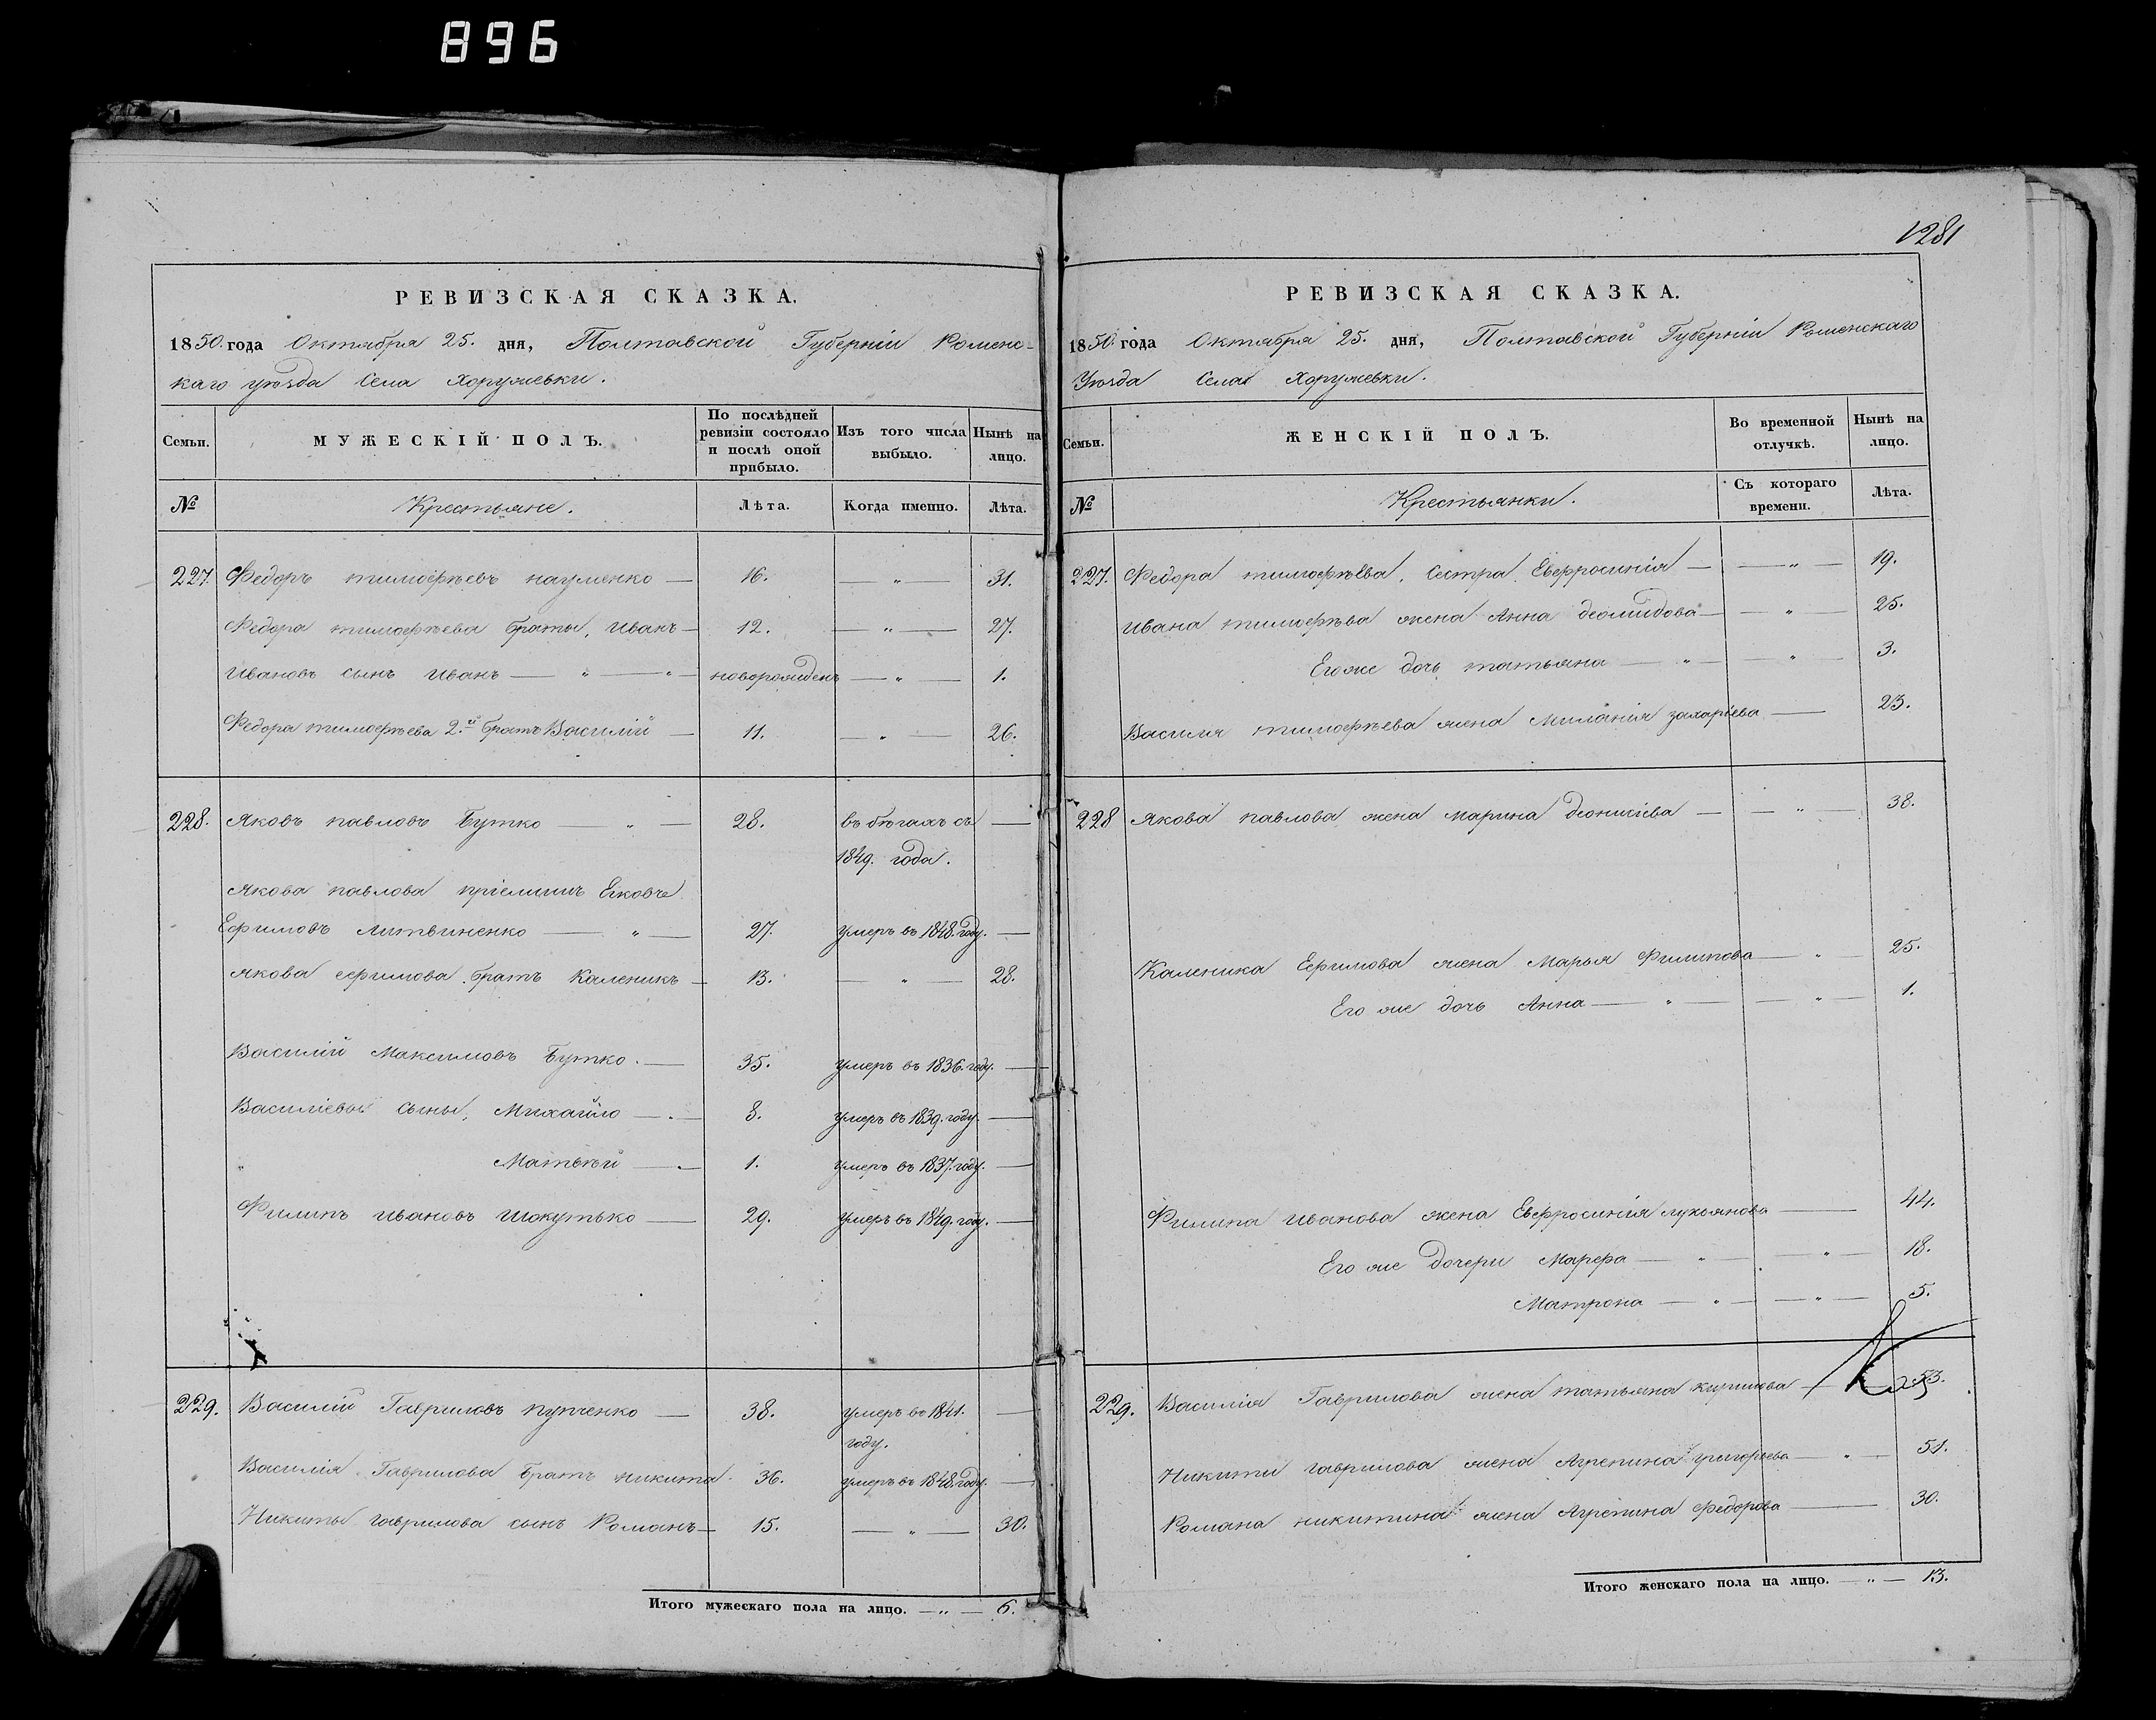 896
1281
РЕВИЗСКАЯ СКАЗКА.
1850. года Октября 25. дня, Полтавской Губерніи Роменс-
каго уѣзда Села Хоружевки.
Семьи.
МУЖЕСКІЙ ПОЛЪ.
По послѣдней ревизіи состояло и послѣ оной прибыло.
Изъ того числа выбыло.
Нынѣ на лицо.
№
Крестьяне.
Лѣта.
Когда именно.
Лѣта.
227. Федоръ тимофѣевъ науменко — 16. — „ — 31.
Федора тимофѣева браты, Иванъ — 12. — „ — 27.
Ивановъ сынъ Иванъ — „ — „ — новорожденъ — „ — 1.
Федора тимофѣева 2.й братъ Василій — 11. — „ — 26.
228. Яковъ павловъ Бутко — „ — 28. въ бѣгахъ съ —
1849. года.
Якова павлова пріемышъ
Ефимовъ литвиненко — „ — 27. умеръ въ 1848. году. —
Якова ефимова братъ Каленикъ — 13. — „ — 28.
Василій Максимовъ Бутко. — 35. умеръ въ 1836. году. —
Василіевы сыны, Михайло — „ — 8. умеръ въ 1839. году. —
„ Матвѣй — „ — 1. умеръ въ 1837. году. —
Филипъ Ивановъ Шокутько — 29. умеръ въ 1849. году. —
229. Василій Гавриловъ пупченко — 38. умеръ въ 1841. —
году.
Василія Гаврилова братъ никита. 36. умеръ въ 1848. году. —
Никиты гаврилова сынъ Романъ — 15. — „ — 30.
Итого мужескаго пола на лицо. — „ — 6.
РЕВИЗСКАЯ СКАЗКА.
1850. года Октября 25. дня, Полтавской Губерніи Роменскаго
Уѣзда Села Хоружевки.
Семьи.
ЖЕНСКІЙ ПОЛЪ.
Во временной отлучкѣ.
Нынѣ на лицо.
№
Крестьянки.
Съ котораго времени.
Лѣта.
227. Федора тимофѣева, сестра Евфросинія — — „ — 19.
Ивана тимофѣва жена Анна деомидова — — „ — 25.
Егоже дочь татьяна — „ — — „ — 3.
Василия тимофѣева жена Миланія захаріева — 23.
228 Якова павлова жена марина деонисіева — — „ — 38.
Каленика Ефимова жена Марья Филипова — „ 25.
Его же дочь Анна — „ — — „ — 1.
Филипа Иванова жена Евфросинія лукоянова — 44.
Его же дочери Марфа — „ — — „ — 18.
Матрона — „ — — „ — 5.
229. Василія Гаврилова жена татьяна кирилова — 53.
Никиты гаврилова жена Агрепина григорьева — „ — 51.
Романа никитина жена Агрепина Федорова — 30.
Итого женскаго пола на лицо. — „ — 13.